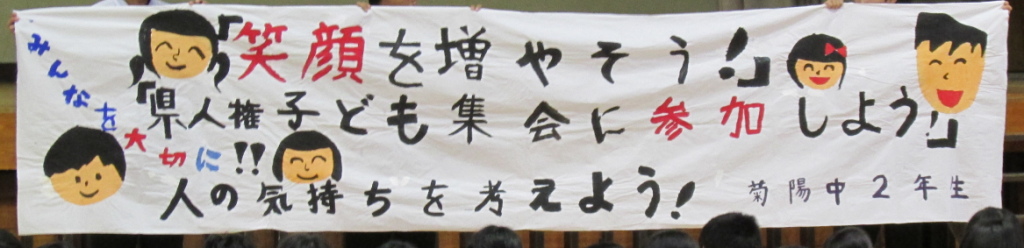 みんなを大切に!!
「笑顔を増やそう!」
「県人権子ども集会に参加しよう」
人の気持ちを考えよう!
菊陽中2年生